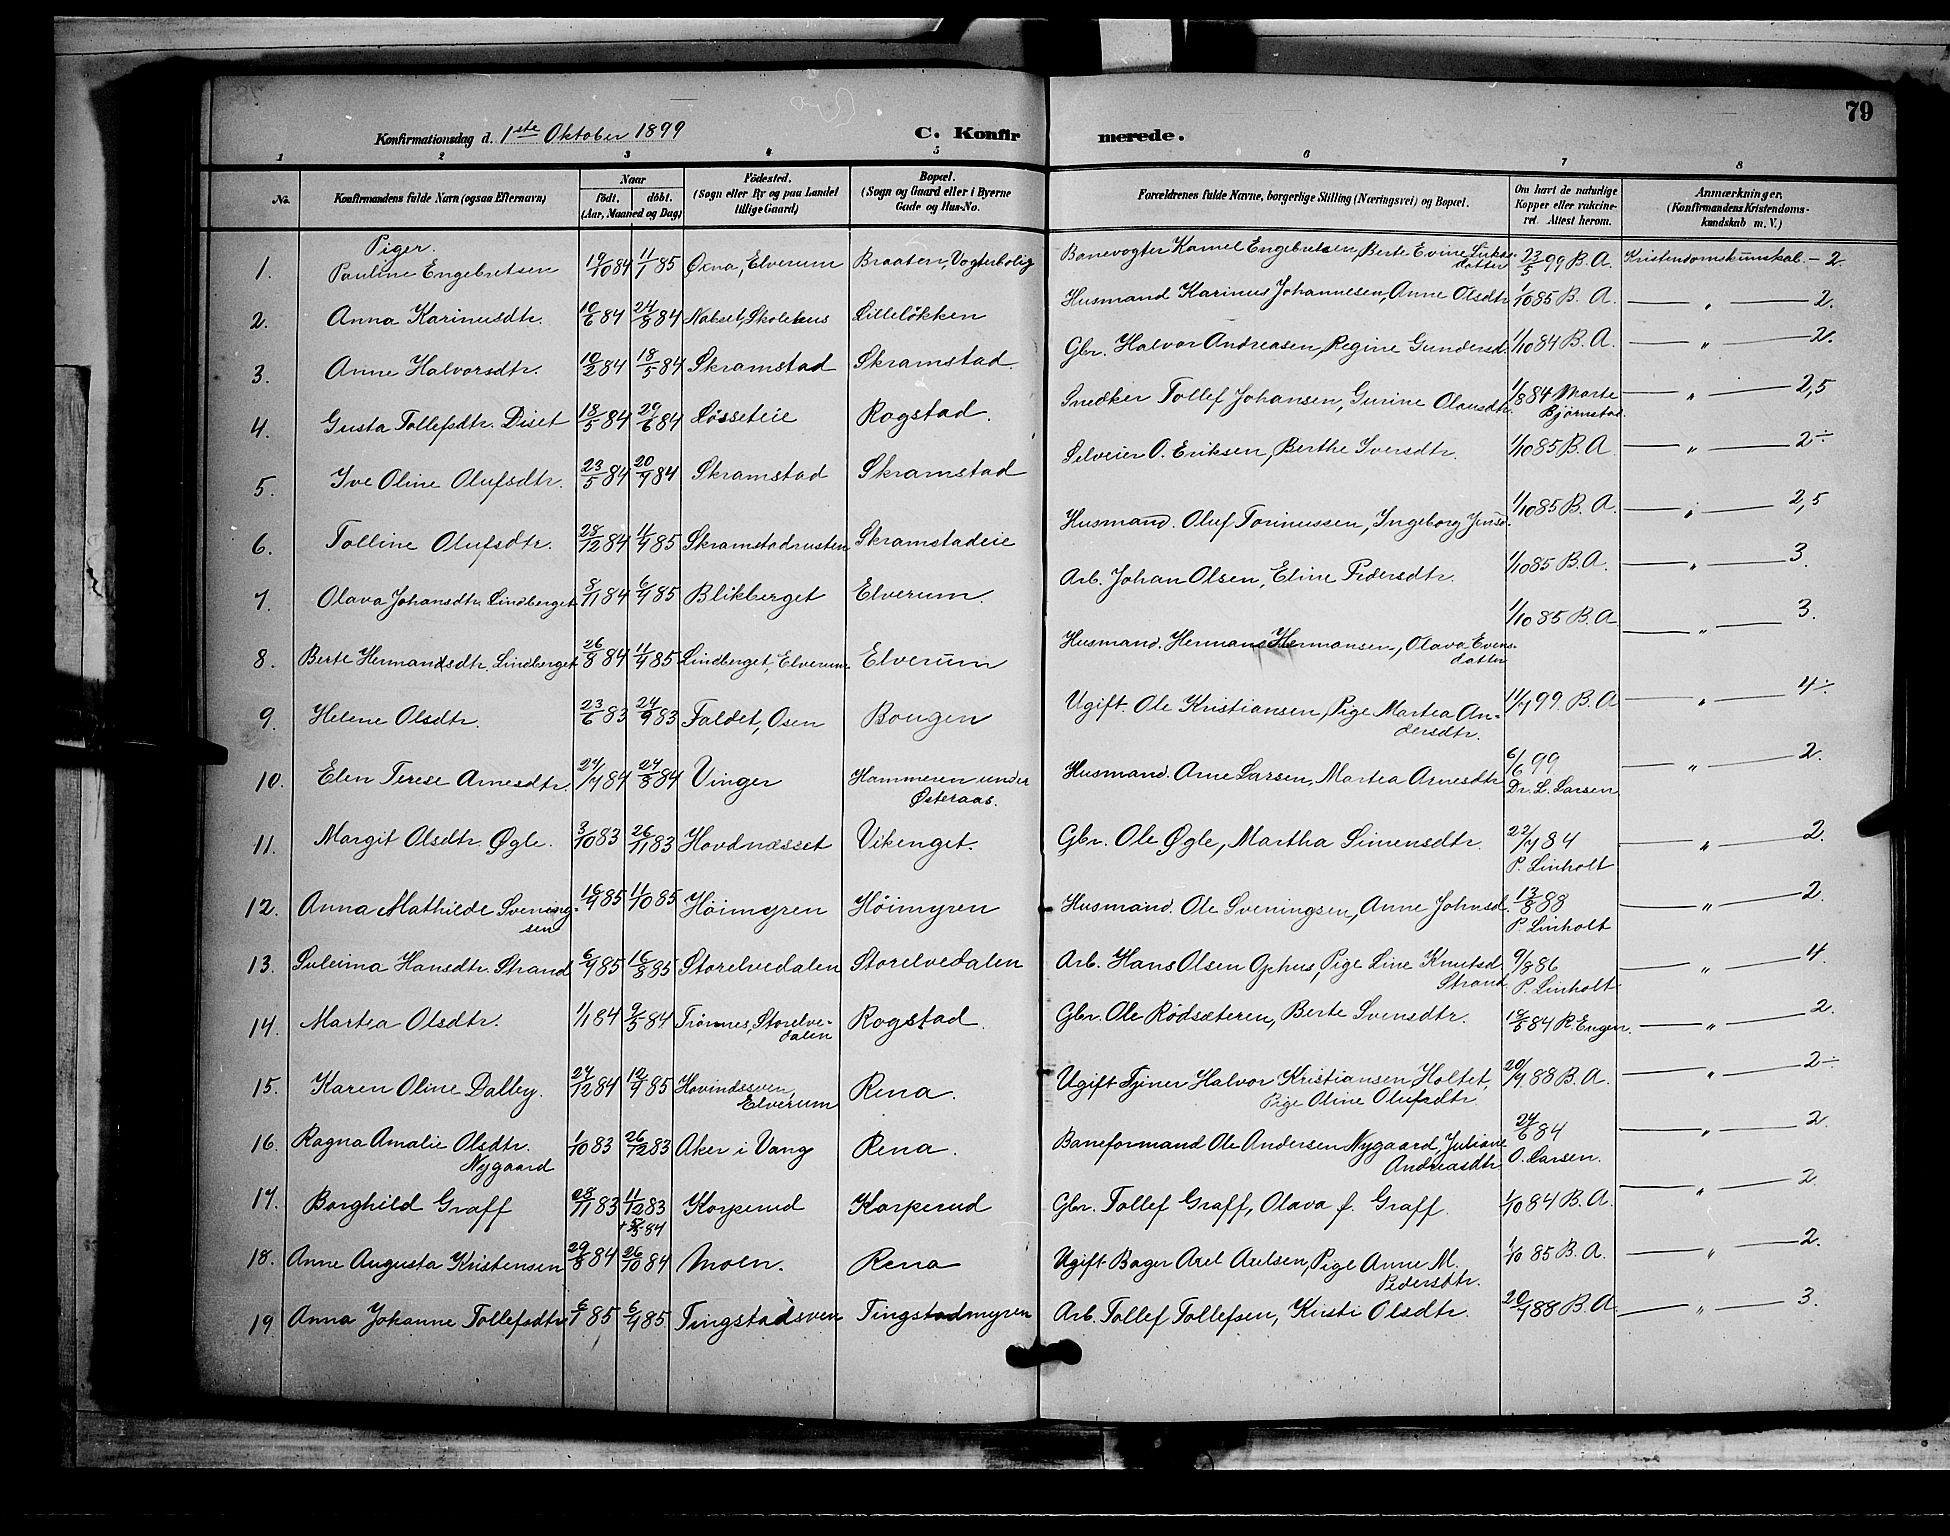 79
Konfirmationsdag d. 1ste Oktober 1899 C. Konfir merede.
1 2 3 4 5 6 7 8
No. Konfirmandens fulde Navn (ogsaa Efternavn) Naar født. døbt. (Aar, Maaned og Dag) Fødested. (Sogn eller By og paa Landet tillige Gaard) Bopæl. (Sogn og Gaard eller i Byerne Gade og Hus-No. Forældrenes fulde Navne, borgerlige Stilling (Næringsvei) og Bopæl. Om havt de naturlige Kopper eller vakcineret. Attest herom. Anmærkninger. (Konfirmandens Kristendomskundskab m. V.)
Piger.
1. Pauline Engebretsen 19/10 84 11/1 85 Øxna, Elverum Braaten, Vogterbolig Banevogter Kamel Engebretsen, Berte Evine Lukasdatter 23/5 99 B. A. Kristendomskunskab - 2.
2. Anna Karinusdtr. 10/6 84 24/8 84 Nabset, Skolehus Lilleløkken Husmand Karinus Johannesen, Anne Olsdtr 1/10 85 B. A. — " — 2.
3. Anne Halvorsdtr. 10/2 84 18/5 84 Skramstad Skramstad. Gbr. Halvor Andreasen, Regine Gundersd. 1/10 84 B. A. — " — 2.
4. Gusta Tollefsdtr. Diset 18/5 84 29/6 84 Løsseteie Rogstad. Snedker Tollef Johansen, Gurine Olausdtr. 1/8 84 Marte Bjørnstad — " — 2,5
5. Ive Oline Olufsdtr. 23/5 84 20/7 84 Skramstad Skramstad Selveier O. Eriksen, Berthe Iversdtr. 1/10 85 B. A — " — 2÷
6. Tolline Olufsdtr. 28/12 84 11/4 85 Skramstadrusten Skramstadeie Husmand. Oluf Torinussen, Ingeborg Jensd. 1/10 85 B. A. — " — 2,5
7. Olava Johansdtr. Lindberget 8/11 84 6/4 85 Blikberget Elverum. Arb. Johan Olsen, Eline Pedersdtr. 1/10 85 B. A. — " — 3.
8. Berte Hermandsdtr. Lindberget 26/8 84 11/4 85 Lindberget, Elverum. Elverum Husmand. Hermand Hermansen, Olava Evensdatter 1/10 85 B. A — " — 3.
9. Helene Olsdtr. 23/6 83 24/9 83 Faldet, Osen Bougen Ugift. Ole Kristiansen, Pige Martea Andersdtr. 11/7 99. B. A — " — 4÷
10. Elen Terese Arnesdtr. 24/4 84 24/8 84 Vinger Hammeren under Østeraas. Husmand. Arne Larsen, Martea Arnesdtr. 6/6 99 Dr. L. Larsen — " — 2.
11. Margit Olsdtr. Øgle. 3/10 83 26/11 83 Hovdnæsset Vikenget. Gbr. Ole Øgle, Martha Simensdtr. 22/7 84 P. Linholt — " — 2.
12. Anna Mathilde Sveningsen 16/4 85 11/10 85 Høimyren Høimyren Husmand. Ole Sveningsen, Anne Johnsd. 13/8 88 P. Linholt — " — 2.
13. Suleima Hansdtr. Strand 6/4 85 16/8 85 Storelvedalen Storelvedalen Arb. Hans Olsen Ophus, Pige Line Knutsd. Strand 9/8 86 P. Linholt — " — 4.
14. Martea Olsdtr. 1/1 84 2/3 84 Trønnes, Storelvedalen Rogstad. Gbr. Ole Rødsæteren, Berte Svensdtr. 19/5 84 R. Engen. — " — 2.
15. Karen Oline Dalby. 24/12 84 12/4 85 Hovindssven, Elverum Rena. Ugift. Tjener Halvor Kristiansen Holtet, Pige Oline Olufsdtr. 20/7 88 B. A. — " — 2÷
16. Ragna Amalie Olsdtr. Nygaard 1/10 83 26/12 83 Aker i Vang Rena. Baneformand Ole Andersen Nygaard, Juliane Andreasdtr. 24/6 84 O. Larsen. — " — 2.
17. Borghild Graff 28/11 83 11/12 83 + 3/3 84 Korperud Korperud Gbr. Tollef Graff, Olava f. Graff. 1/10 84 B. A. — " — 2.
18. Anne Augusta Kristensen 29/8 84 26/10 84 Moen. Rena Ugift. Bager Axel Axelsen, Pige Anne M. Pedersdtr. 1/10 85 B. A. — " — 2.
19 Anna Johanne Tollefsdtr. 6/1 85 6/4 85 Tingstadsven Tingstadmyren Arb. Tollef Tollefsen, Kirsti Olsdtr. 20/7 88 B. A. — " — 3.